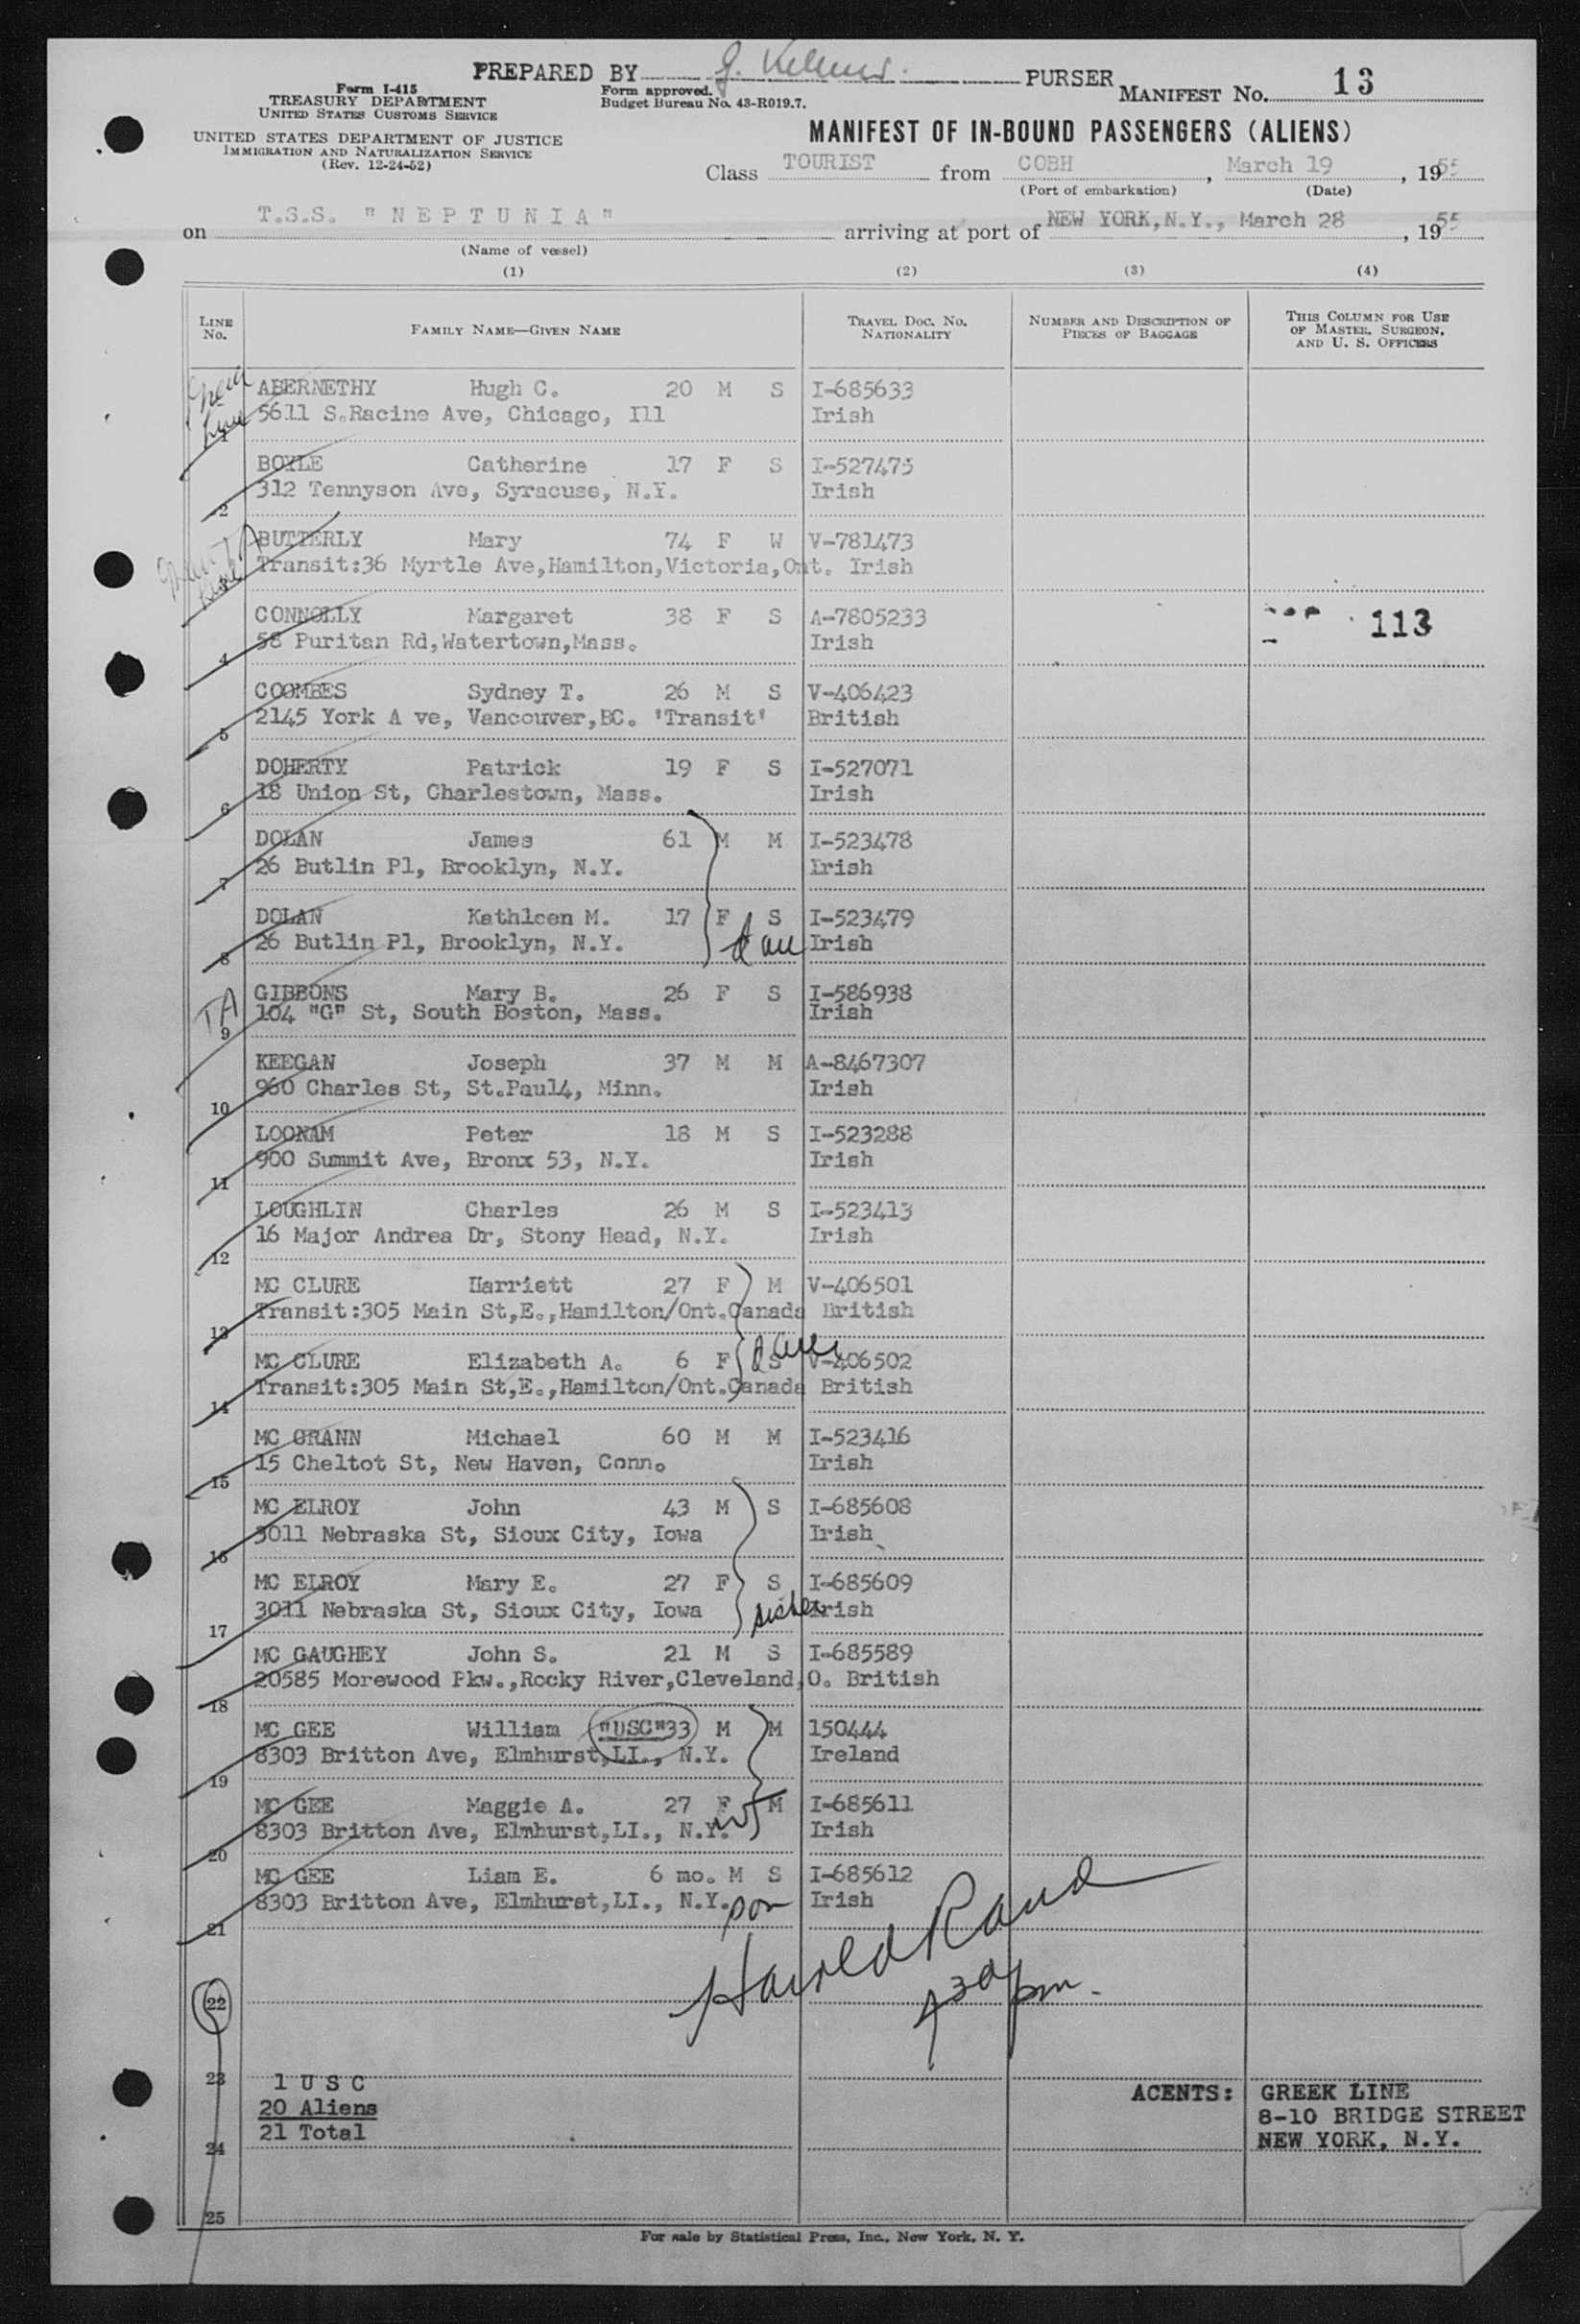 PREPARED BY PURSER
Form I-415
TREASURY DEPARTMENT
UNITED STATES CUSTOMS SERVICE
Form approved.
Budget Bureau No. 43-R019.7.
MANIFEST NO. 13
UNITED STATES DEPARTMENT OF JUSTICE
IMMIGRATION AND NATURALIZATION SERVICE
(Rev. 12-24-52)
MANIFEST OF IN-BOUND PASSENGERS (ALIENS)
Class TOURIST from COBH, March 19, 1955
(Port of embarkation) (Date)
on T.S.S. "NEPTUNIA" arriving at port of NEW YORK, N.Y., March 28, 1955
(Name of vessel)
(1) (2) (3) (4)
LINE NO. FAMILY NAME—GIVEN NAME TRAVEL DOC. NO. NATIONALITY NUMBER AND DESCRIPTION OF PIECES OF BAGGAGE THIS COLUMN FOR USE OF MASTER, SURGEON, AND U. S. OFFICERS
ABERNETHY Hugh C. 20 M S I-685633
1 5611 S.Racine Ave, Chicago, Ill Irish
BOYLE Catherine 17 F S I-527475
2 312 Tennyson Ave, Syracuse, N.Y. Irish
BUTTERLY Mary 74 F W V-781473
Transit:36 Myrtle Ave,Hamilton,Victoria,Ont. Irish
CONNOLLY Margaret 38 F S A-7805233 113
4 58 Puritan Rd,Watertown,Mass. Irish
COOMBES Sydney T. 26 M S V-406423
5 2145 York A ve, Vancouver,BC. 'Transit' British
DOHERTY Patrick 19 F S I-527071
6 18 Union St, Charlestown, Mass. Irish
DOLAN James 61 M M I-523478
7 26 Butlin Pl, Brooklyn, N.Y. Irish
DOLAN Kathleen M. 17 F S I-523479
8 26 Butlin Pl, Brooklyn, N.Y. dau Irish
TA GIBBONS Mary B. 26 F S I-586938
9 104 "G" St, South Boston, Mass. Irish
KEEGAN Joseph 37 M M A-8467307
10 960 Charles St, St.Paul4, Minn. Irish
LOONAM Peter 18 M S I-523288
11 900 Summit Ave, Bronx 53, N.Y. Irish
LOUGHLIN Charles 26 M S I-523413
12 16 Major Andrea Dr, Stony Head, N.Y. Irish
MC CLURE Harriett 27 F M V-406501
13 Transit:305 Main St,E.,Hamilton/Ont.Canada British
MC CLURE Elizabeth A. 6 F S V-406502
14 Transit:305 Main St,E.,Hamilton/Ont.Canada British
MC GRANN Michael 60 M M I-523416
15 15 Cheltot St, New Haven, Conn. Irish
MC ELROY John 43 M S I-685608
16 3011 Nebraska St, Sioux City, Iowa Irish
MC ELROY Mary E. 27 F S I-685609
17 3011 Nebraska St, Sioux City, Iowa sister Irish
MC GAUGHEY John S. 21 M S I-685589
18 20585 Morewood Pkw.,Rocky River,Cleveland,O. British
MC GEE William "USC"33 M M 150444
19 8303 Britton Ave, Elmhurst,LI., N.Y. Ireland
MC GEE Maggie A. 27 F M I-685611
20 8303 Britton Ave, Elmhurst,LI., N.Y. wf Irish
MC GEE Liam E. 6 mo. M S I-685612
21 8303 Britton Ave, Elmhurst,LI., N.Y. son Irish
Harold Rand
22 430 pm.
23 1 U S C
20 Aliens
21 Total
24
ACENTS: GREEK LINE
8-10 BRIDGE STREET
NEW YORK, N.Y.
25
For sale by Statistical Press, Inc., New York, N. Y.